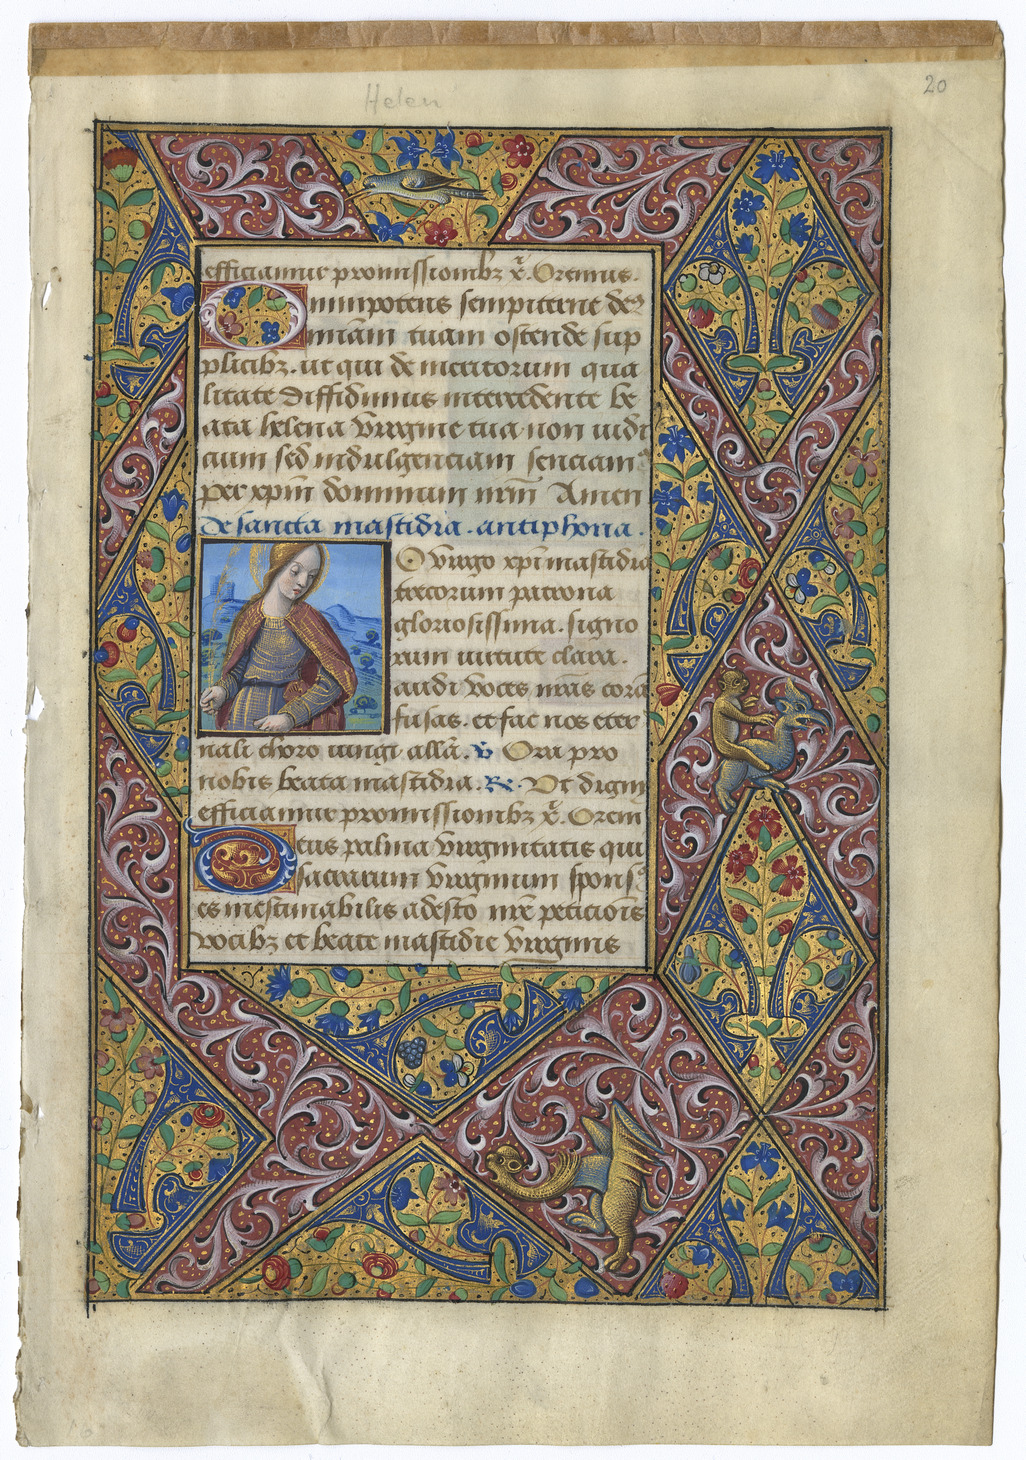 Helen
20
efficiamur promissionibz x̄. Oremus.
Omnipotens sempiterne deꝰ
animam tuam ostende sup
plicibz. ut qui de meritorum qua
litate diffidimus intercedente be
ata helena virgine tua non iudi
cium sed indulgenciam senciamꝰ
per xp̄m dominum nr̄m Amen
De sancta mastidia. antiphona.
O virgo xp̄i mastidia
trecorum patrona
gloriosissima. signo
rum virtute clara.
audi voces nr̄as corā
fusas. et fac nos eter
nali choro iungi all̄a. ℣ Ora pro
nobis beata mastidia. ℟. Ut digni
efficiamur promissionibz x̄. Orem
Deus palma virginitatis qui
sacrarum virginum sponsꝰ
es inestimabilis adesto nr̄e peticiōis
vocibz et beate mastidie virginis